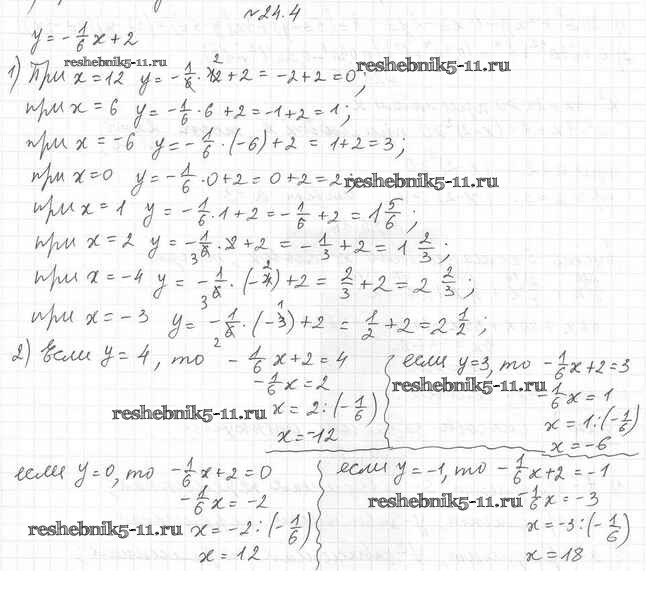 №24.4
y = -1/6 x + 2
reshebnik5-11.ru
1) При x = 12 y = -1/6 · 12 2 + 2 = -2 + 2 = 0;
reshebnik5-11.ru
при x = 6 y = -1/6 · 6 + 2 = -1 + 2 = 1;
при x = -6 y = -1/6 · (-6) + 2 = 1 + 2 = 3;
при x = 0 y = -1/6 · 0 + 2 = 0 + 2 = 2;
reshebnik5-11.ru
при x = 1 y = -1/6 · 1 + 2 = -1/6 + 2 = 1 5/6;
при x = 2 y = -1/6 3 · 2 + 2 = -1/3 + 2 = 1 2/3;
при x = -4 y = -1/6 3 · (-4 2) + 2 = 2/3 + 2 = 2 2/3;
при x = -3 y = -1/6 2 · (-3 1) + 2 = 1/2 + 2 = 2 1/2;
2) Если y = 4, то -1/6 x + 2 = 4
-1/6 x = 2
reshebnik5-11.ru
x = 2 : (-1/6)
x = -12
если y = 3, то -1/6 x + 2 = 3
reshebnik5-11.ru
-1/6 x = 1
x = 1 : (-1/6)
x = -6
если y = 0, то -1/6 x + 2 = 0
-1/6 x = -2
reshebnik5-11.ru
x = -2 : (-1/6)
x = 12
если y = -1, то -1/6 x + 2 = -1
reshebnik5-11.ru
-1/6 x = -3
x = -3 : (-1/6)
x = 18